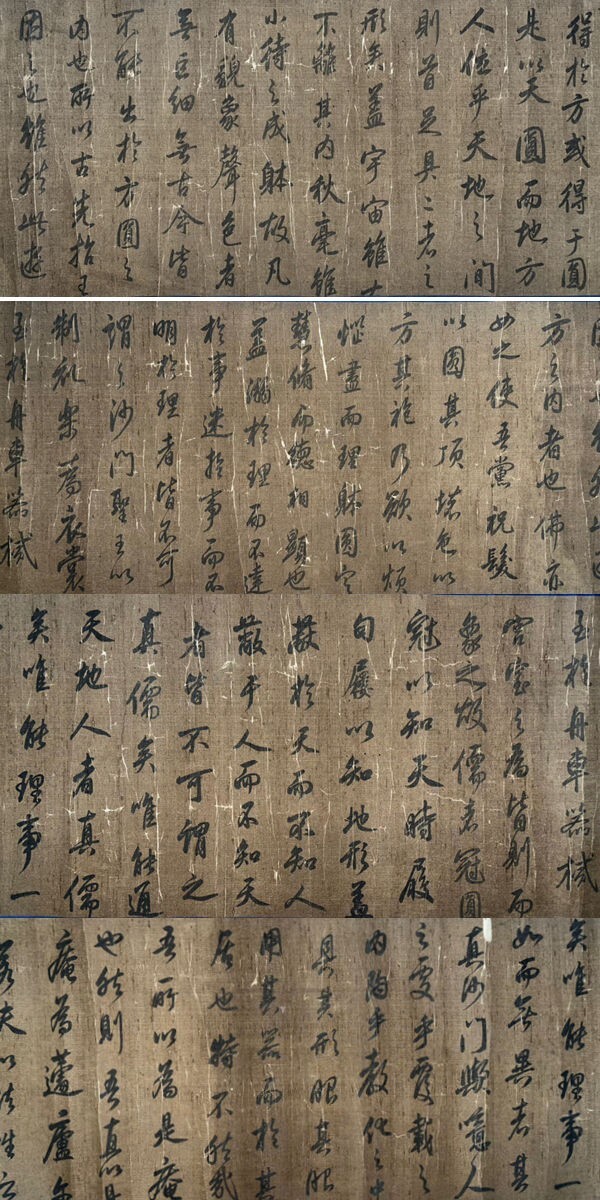 得於方或得于圓
是以天圓而地方
人位乎天地之間
則首足具二者之
形矣蓋宇宙雖大
不離其内秋毫雖
小待之成躰故凡
有貌象聲色者
無巨細無古今皆
不能出於方圓之
内也所以古先哲王
因之也雖然此遊
方之内者也佛亦
如之使吾黨祝髮
以圓其頂壞色以
方其袍乃欲以煩
惱盡而理躰圓定
慧脩而德相顯也
蓋溺於理而不達
於事迷於事而不
明於理者皆不可
謂之沙門聖王以
制礼樂為衣裳
至於舟車器械
至於舟車器械
宮室之為皆則而
象之故儒者冠圓
冠以知天時履
句屨以知地形蓋
蔽於天而不知人
蔽于人而不知天
者皆不可謂之
真儒矣唯能通
天地人者真儒
矣唯能理事一
矣唯能理事一
如而無異者其
真沙門歟噫人
之處乎覆載之
内陶乎教化之中
具其形服其服
用其器而於其
居也特不然哉
吾所以為是庵
也然則吾直以是
庵為蘧廬尔
若夫以法性之